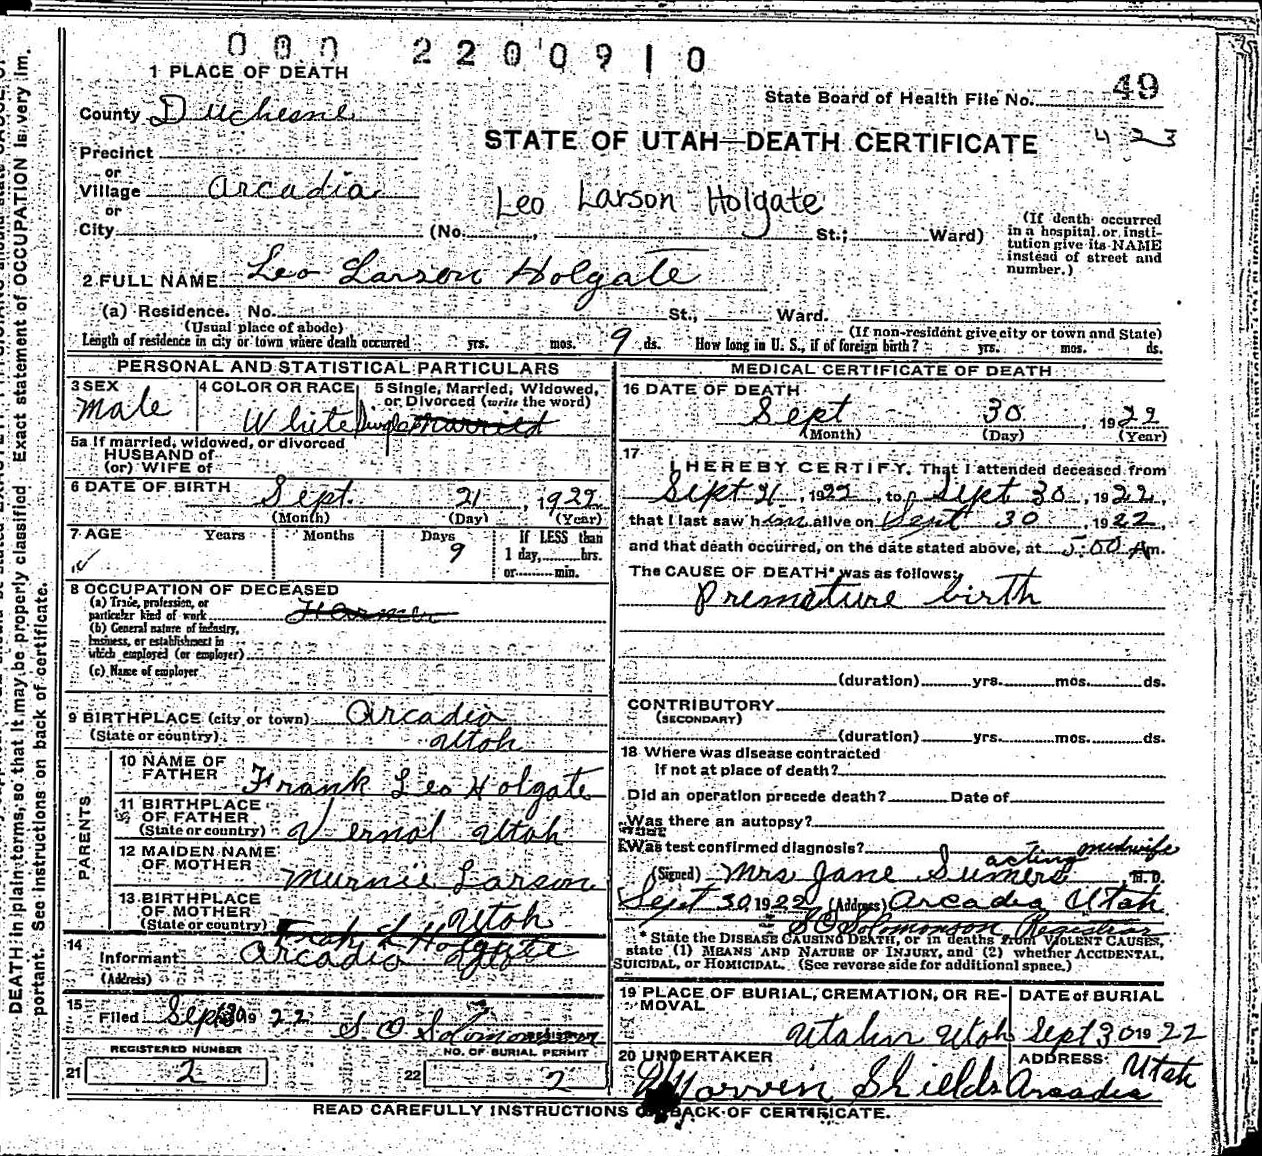 000 2200910
1 PLACE OF DEATH
49
State Board of Health File No.
County Duchesne
STATE OF UTAH—DEATH CERTIFICATE
423
Precinct
or
Village Arcadia
or
City
Leo Larson Holgate
(No. , St.; Ward)
(If death occurred in a hospital or institution give its NAME instead of street and number.)
2 FULL NAME Leo Larson Holgate
(a) Residence. No. St., Ward.
(Usual place of abode)
(If non-resident give city or town and State)
Length of residence in city or town where death occurred yrs. mos. 9 ds. How long in U. S., if of foreign birth? yrs. mos. ds.
PERSONAL AND STATISTICAL PARTICULARS
3 SEX
Male
4 COLOR OR RACE
White
5 Single, Married, Widowed, or Divorced (write the word)
Single Married
5a If married, widowed, or divorced
HUSBAND of
(or) WIFE of
6 DATE OF BIRTH
Sept. 21, 1922
(Month) (Day) (Year)
7 AGE Years Months Days
9
If LESS than
1 day, hrs.
or min.
8 OCCUPATION OF DECEASED
(a) Trade, profession, or
particular kind of work Farmer
(b) General nature of industry,
business, or establishment in
which employed (or employer)
(c) Name of employer
9 BIRTHPLACE (city or town) Arcadia
(State or country) Utah
PARENTS
10 NAME OF FATHER Frank Leo Holgate
11 BIRTHPLACE OF FATHER
(State or country) Vernal Utah
12 MAIDEN NAME OF MOTHER Murnie Larson
13 BIRTHPLACE OF MOTHER
(State or country) Utah
14
Informant Frank L Holgate
(Address) Arcadia
15
Filed Sept 30 1922 S. O Solomonson
REGISTRAR
REGISTERED NUMBER
21 2
NO. OF BURIAL PERMIT
22 2
MEDICAL CERTIFICATE OF DEATH
16 DATE OF DEATH
Sept 30, 1922
(Month) (Day) (Year)
17
I HEREBY CERTIFY, That I attended deceased from
Sept 21, 1922, to Sept 30, 1922,
that I last saw him alive on Sept 30, 1922,
and that death occurred, on the date stated above, at 5:00 A m.
The CAUSE OF DEATH* was as follows:
Premature birth
(duration) yrs. mos. ds.
CONTRIBUTORY
(SECONDARY)
(duration) yrs. mos. ds.
18 Where was disease contracted
if not at place of death?
Did an operation precede death? Date of
Was there an autopsy?
Was test confirmed diagnosis?
acting midwife
(Signed) Mrs Jane Sumers M. D.
Sept 30 1922 (Address) Arcadia Utah
S O Solomonson Registrar
* State the DISEASE CAUSING DEATH, or in deaths from VIOLENT CAUSES,
state (1) MEANS AND NATURE OF INJURY, and (2) whether ACCIDENTAL,
SUICIDAL, or HOMICIDAL. (See reverse side for additional space.)
19 PLACE OF BURIAL, CREMATION, OR REMOVAL
Utahn Utah
DATE of BURIAL
Sept 30 1922
20 UNDERTAKER
Marven Shields
ADDRESS
Arcadia Utah
READ CAREFULLY INSTRUCTIONS ON BACK OF CERTIFICATE.
DEATH in plain terms, so that it may be properly classified. Exact statement of OCCUPATION is very im-
portant. See instructions on back of certificate.